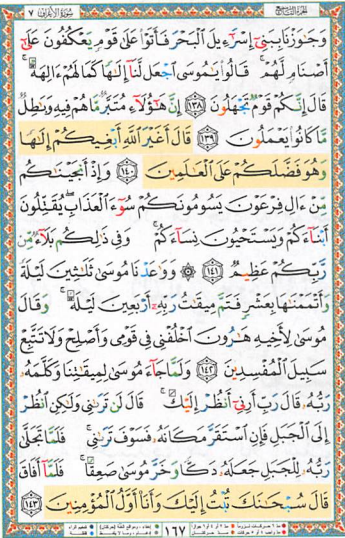 الجزء التاسع ٧ سورة الأعراف
وَجَٰوَزْنَا بِبَنِىٓ إِسْرَٰٓءِيلَ ٱلْبَحْرَ فَأَتَوْا۟ عَلَىٰ قَوْمٍ يَعْكُفُونَ عَلَىٰٓ
أَصْنَامٍ لَّهُمْ ۚ قَالُوا۟ يَٰمُوسَى ٱجْعَل لَّنَآ إِلَٰهًا كَمَا لَهُمْ ءَالِهَةٌ ۚ
قَالَ إِنَّكُمْ قَوْمٌ تَجْهَلُونَ ١٣٨ إِنَّ هَٰٓؤُلَآءِ مُتَبَّرٌ مَّا هُمْ فِيهِ وَبَٰطِلٌ
مَّا كَانُوا۟ يَعْمَلُونَ ١٣٩ قَالَ أَغَيْرَ ٱللَّهِ أَبْغِيكُمْ إِلَٰهًا
وَهُوَ فَضَّلَكُمْ عَلَى ٱلْعَٰلَمِينَ ١٤٠ وَإِذْ أَنجَيْنَٰكُم
مِّنْ ءَالِ فِرْعَوْنَ يَسُومُونَكُمْ سُوٓءَ ٱلْعَذَابِ ۖ يُقَتِّلُونَ
أَبْنَآءَكُمْ وَيَسْتَحْيُونَ نِسَآءَكُمْ ۚ وَفِى ذَٰلِكُم بَلَآءٌ مِّن
رَّبِّكُمْ عَظِيمٌ ١٤١ ۞ وَوَٰعَدْنَا مُوسَىٰ ثَلَٰثِينَ لَيْلَةً
وَأَتْمَمْنَٰهَا بِعَشْرٍ فَتَمَّ مِيقَٰتُ رَبِّهِۦٓ أَرْبَعِينَ لَيْلَةً ۚ وَقَالَ
مُوسَىٰ لِأَخِيهِ هَٰرُونَ ٱخْلُفْنِى فِى قَوْمِى وَأَصْلِحْ وَلَا تَتَّبِعْ
سَبِيلَ ٱلْمُفْسِدِينَ ١٤٢ وَلَمَّا جَآءَ مُوسَىٰ لِمِيقَٰتِنَا وَكَلَّمَهُۥ
رَبُّهُۥ قَالَ رَبِّ أَرِنِىٓ أَنظُرْ إِلَيْكَ ۚ قَالَ لَن تَرَىٰنِى وَلَٰكِنِ ٱنظُرْ
إِلَى ٱلْجَبَلِ فَإِنِ ٱسْتَقَرَّ مَكَانَهُۥ فَسَوْفَ تَرَىٰنِى ۚ فَلَمَّا تَجَلَّىٰ
رَبُّهُۥ لِلْجَبَلِ جَعَلَهُۥ دَكًّا وَخَرَّ مُوسَىٰ صَعِقًا ۚ فَلَمَّآ أَفَاقَ
قَالَ سُبْحَٰنَكَ تُبْتُ إِلَيْكَ وَأَنَا۠ أَوَّلُ ٱلْمُؤْمِنِينَ ١٤٣
١٦٧